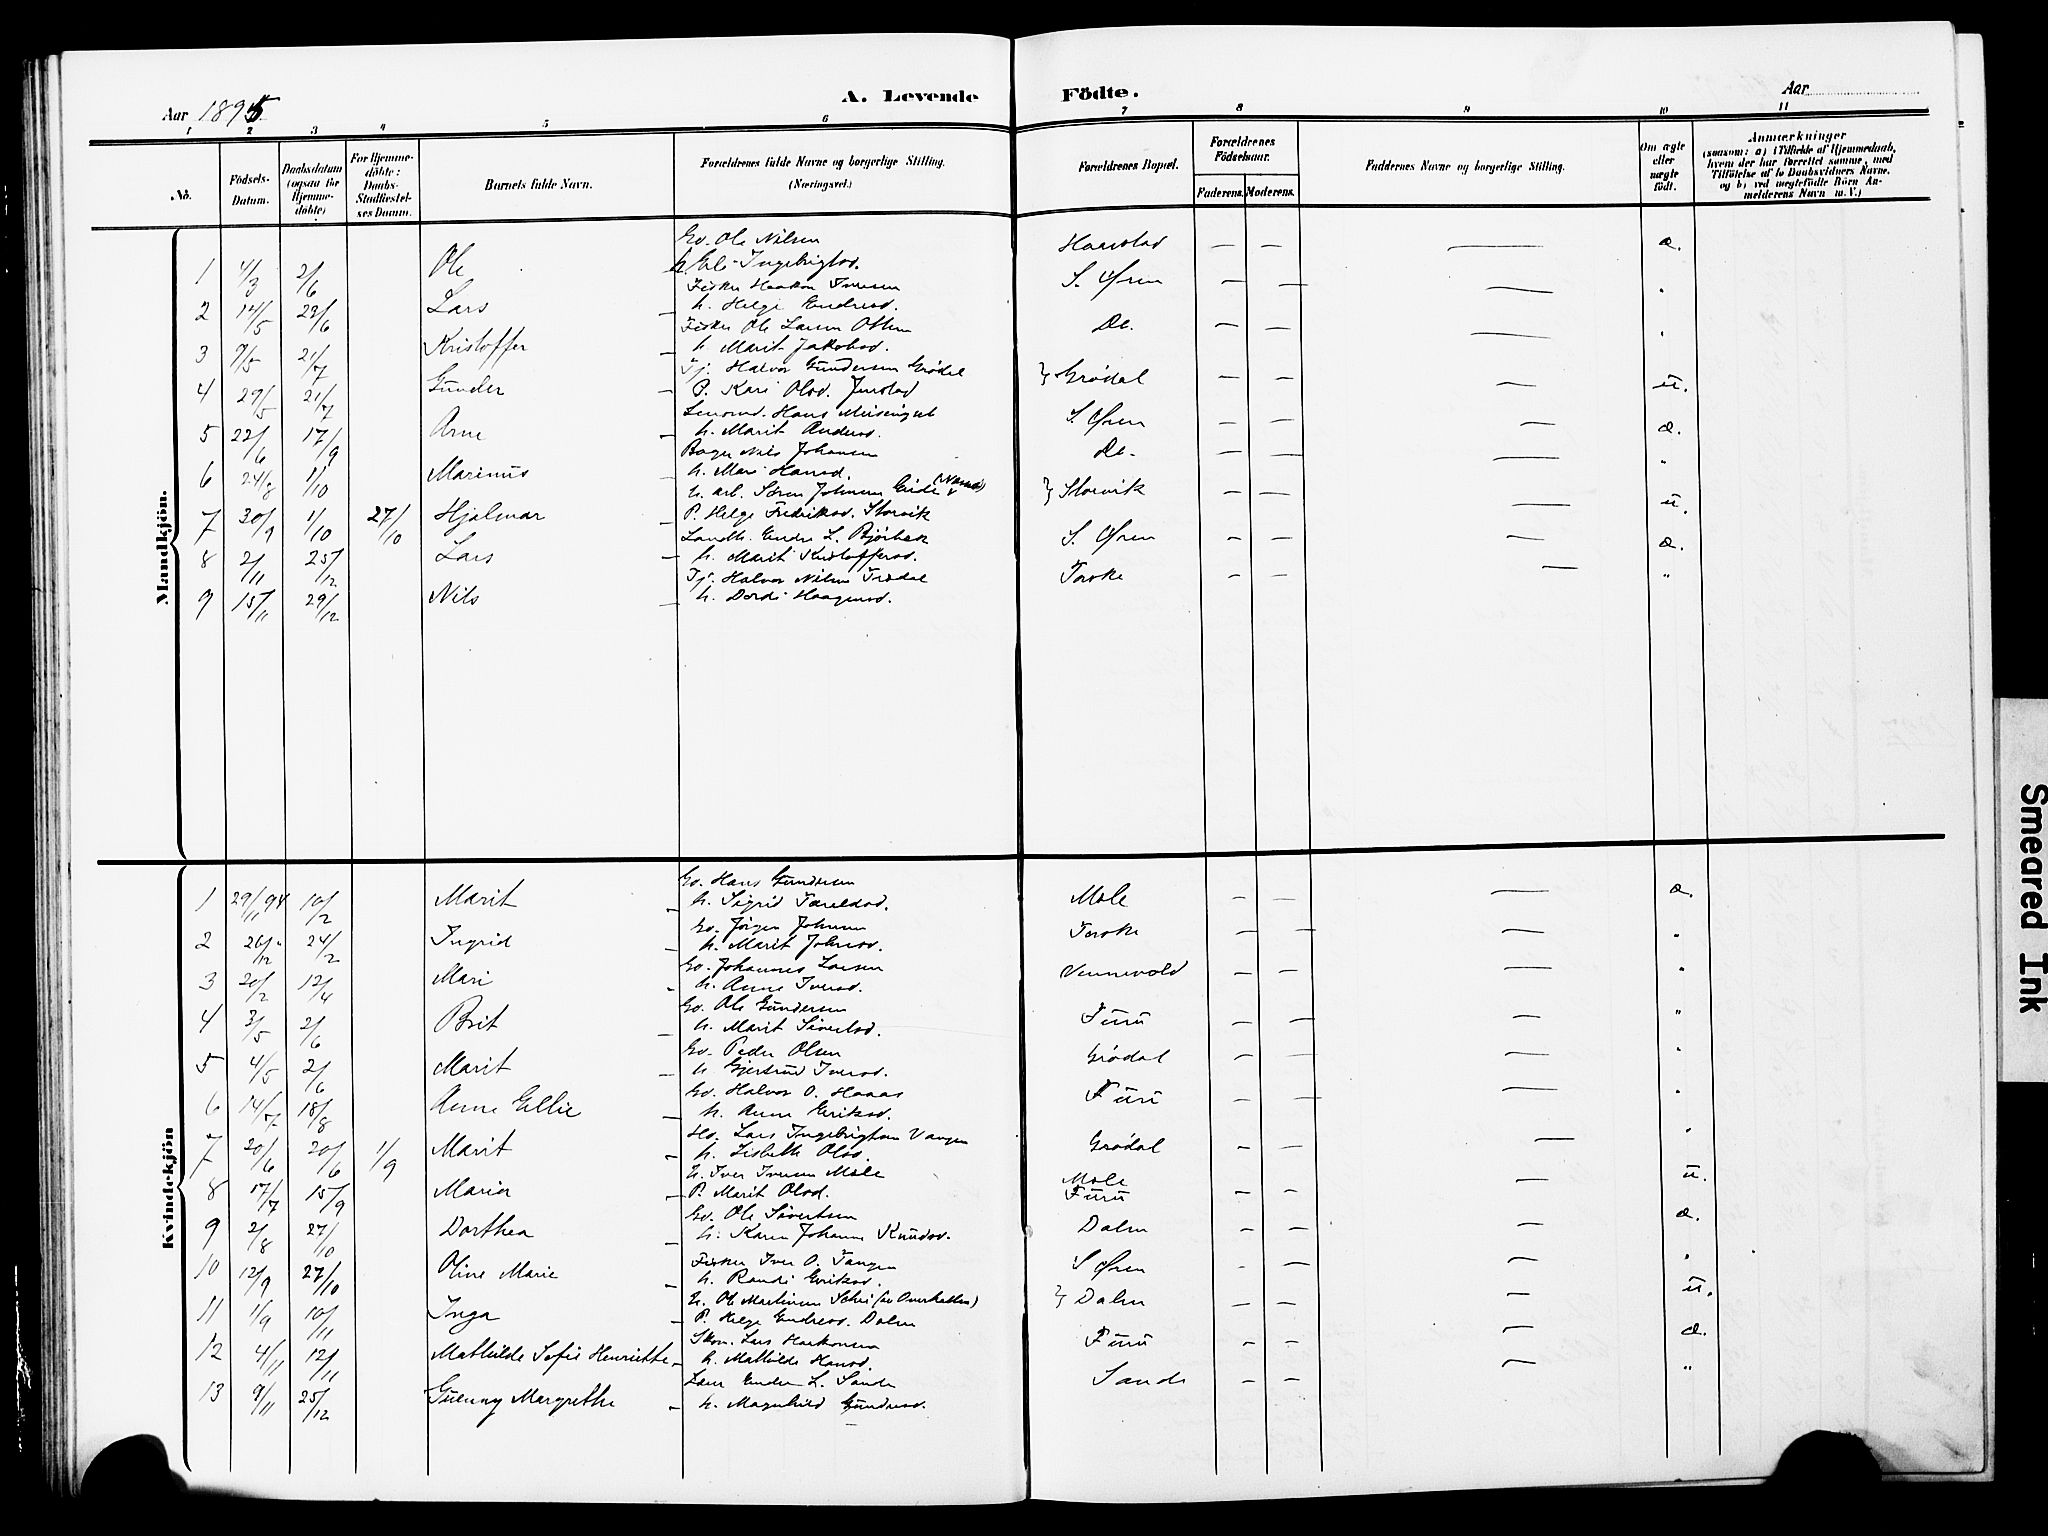 Aar 1895
A. Levende Födte.
Aar
1 2 3 4 5 6 7 8 9 10 11
No.
Födsels-Datum.
Daabsdatum (ogsaa for Hjemmedöbte)
For Hjemmedöbte: Daabs-Stadfæstelses Datum.
Barnets fulde Navn.
Forældrenes fulde Navne og borgerlige Stilling. (Næringsvei.)
Forældrenes Bopæl.
Forældrenes Födselsaar.
Faderens. Moderens.
Faddernes Navne og borgerlige Stilling.
Om ægte eller uægte födt.
Anmærkninger (saasom: a) i Tilfælde af Hjemmedaab, hvem der har forrettet samme, med Tilföielse af to Daabsvidners Navne, og b) ved uægtefödte Börn Anmelderens Navn m. V.)
Mandkjön.
Gv. Ole Nilsen Haarstad — — — æ.
1 4/3 2/6 Ole h. Ingebrigtsd.
Fisker Haakon Iversen S. Øren — — — "
2 14/5 22/6 Lars — h. Helge Endresd.
Fisker Ole Larsen De. — — — "
3 9/5 21/7 Kristoffer — h. Marit Jakobsd.
Tj. Halvor Gundersen Grødal } Grødal — — — u.
4 29/5 21/7 Gunder — P. Kari Olsd.
Hans Meisingset S. Øren — — — æ.
5 22/6 17/9 Arne — h. Marit Andersd.
Bager Nils Johansen De. — — — "
6 24/8 1/10 Marinus — h. Mari Hansd.
arb. Søren Johnsen } Storvik — — — u.
7 30/9 1/10 27/10 Hjalmar — P. Helge Fredriksd. Storvik
Landh. Endre L. Bjørbæk S. Øren — — — æ.
8 2/11 25/12 Lars — h. Marit Kristoffersd.
Tj. Halvor Nilsen Torske — — — "
9 15/11 29/12 Nils — h. Dordi Haagensd.
Kvindekjön
Gv. Hans Gundersen
1 29/11 94 10/2 Marit — h. Sigrid Mole — — — æ.
Gv. Jørgen Johnsen
2 26/12 " 24/2 Ingrid — h. Marit Johnsd. Torske — — — "
Gv. Johannes Larsen
3 20/2 12/4 Mari - h. Anne Iversd. Vennevold — — — "
Gv. Ole Gundersen
4 3/5 2/6 Brit — h. Marit Sivertsd. Furu — — — "
Gv. Peder Olsen
5 4/5 2/6 Marit h. Gjertrud Iversd. Grødal — — — "
Gv. Halvor O. Haaas
6 14/7 18/8 Anne Ellie — h. Anne Eriksd. Furu — — — "
Lars Ingebrigtsen Vangen
7 20/6 20/6 1/9 Marit — h. Lisbeth Olsd. Grødal — — — "
U. Iver Iversen Mole Mole — u.
8 17/7 15/9 Maria — P. Marit Olsd. Furu — —
Gv. Ole Sivertsen
9 2/8 27/10 Dorthea h. Karen Johanne Knudsd. Dalen — — — æ.
Fisker Iver O. Tangen
10 12/9 27/10 Oline Marie — h. Randi Eriksd. S Øren - — — "
U. Ole Martinus (av Overhallen) } Dalen — — — u.
11 1/9 10/11 Inga — P. Helge Endresd. Dalen
Skom. Lars Haakonsen
12 4/11 12/11 Mathilde Sofie Henriette — h. Mathilde Hansd. Furu — — — æ.
Lærer Endre L. Sande
13 9/11 25/12 Guenny Margrethe — h. Magnhild Gundersd. Sande — — — "
Smeared Ink